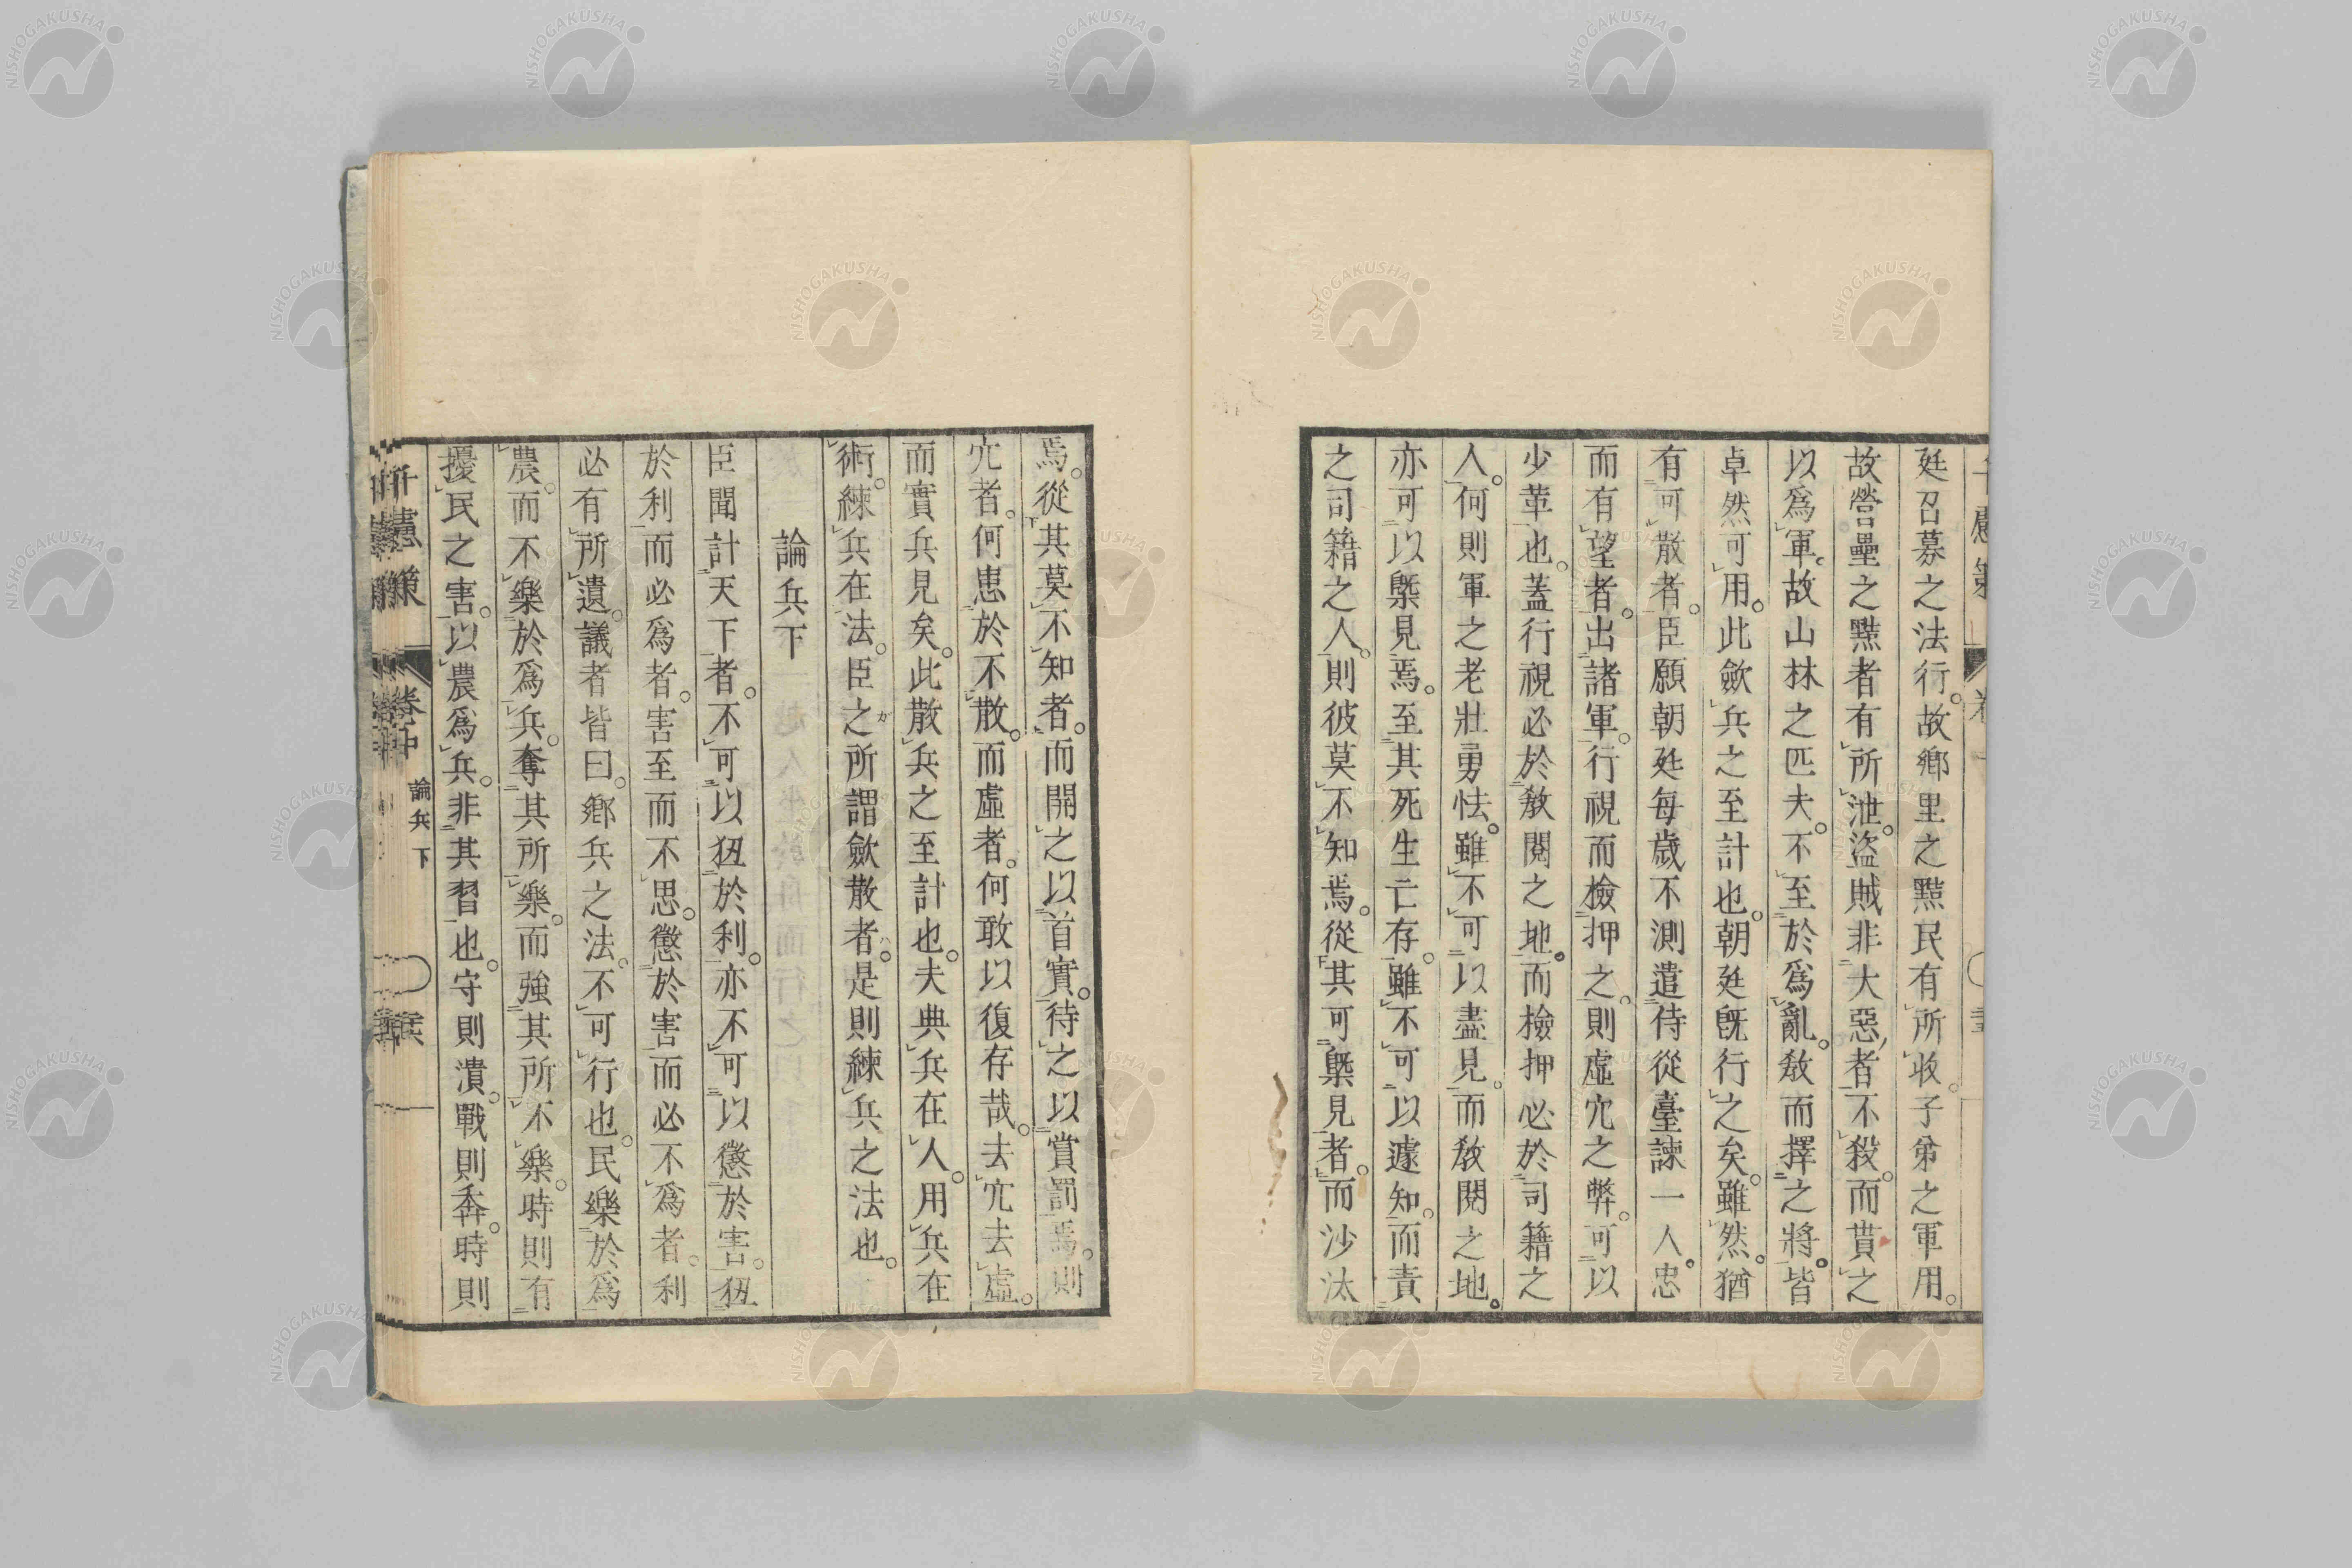 廷召募之法行。故鄉里之黠民有所收。子弟之軍用。
故營壘之黠者有所泄。盜賊非大惡者不殺。而貰之
以爲軍。故山林之匹夫。不至於爲亂。敎而擇之將。皆
卓然可用。此歛兵之至計也。朝廷旣行之矣。雖然。猶
有可散者。臣願朝廷每歲不測遣侍從臺諫一人。忠
而有望者。出諸軍。行視而檢押之。則虛冗之弊。可以
少革也。蓋行視必於敎閱之地。而檢押必於司籍之
人。何則軍之老壯勇怯。雖不可以盡見。而敎閱之地。
亦可以槩見焉。至其死生亡存。雖不可以遽知。而責
之司籍之人。則彼莫不知焉。從其可槩見者。而沙汰
焉。從其莫不知者。而開之以首實。待之以賞罰焉。則
冗者。何患於不散。而虛者。何敢以復存哉。去冗去虛。
而實兵見矣。此散兵之至計也。夫典兵在人。用兵在
術。練兵在法。臣之所謂歛散者。是則練兵之法也。
論兵下
臣聞計天下者。不可以狃於利。亦不可以懲於害。狃
於利而必爲者。害至而不思。懲於害而必不爲者。利
必有所遺。議者皆曰。鄉兵之法。不可行也。民樂於爲
農。而不樂於爲兵。奪其所樂。而強其所不樂。時則有
擾民之害。以農爲兵。非其習也。守則潰。戰則奔。時則
千慮策 卷中 論兵下
NISHOGAKUSHA